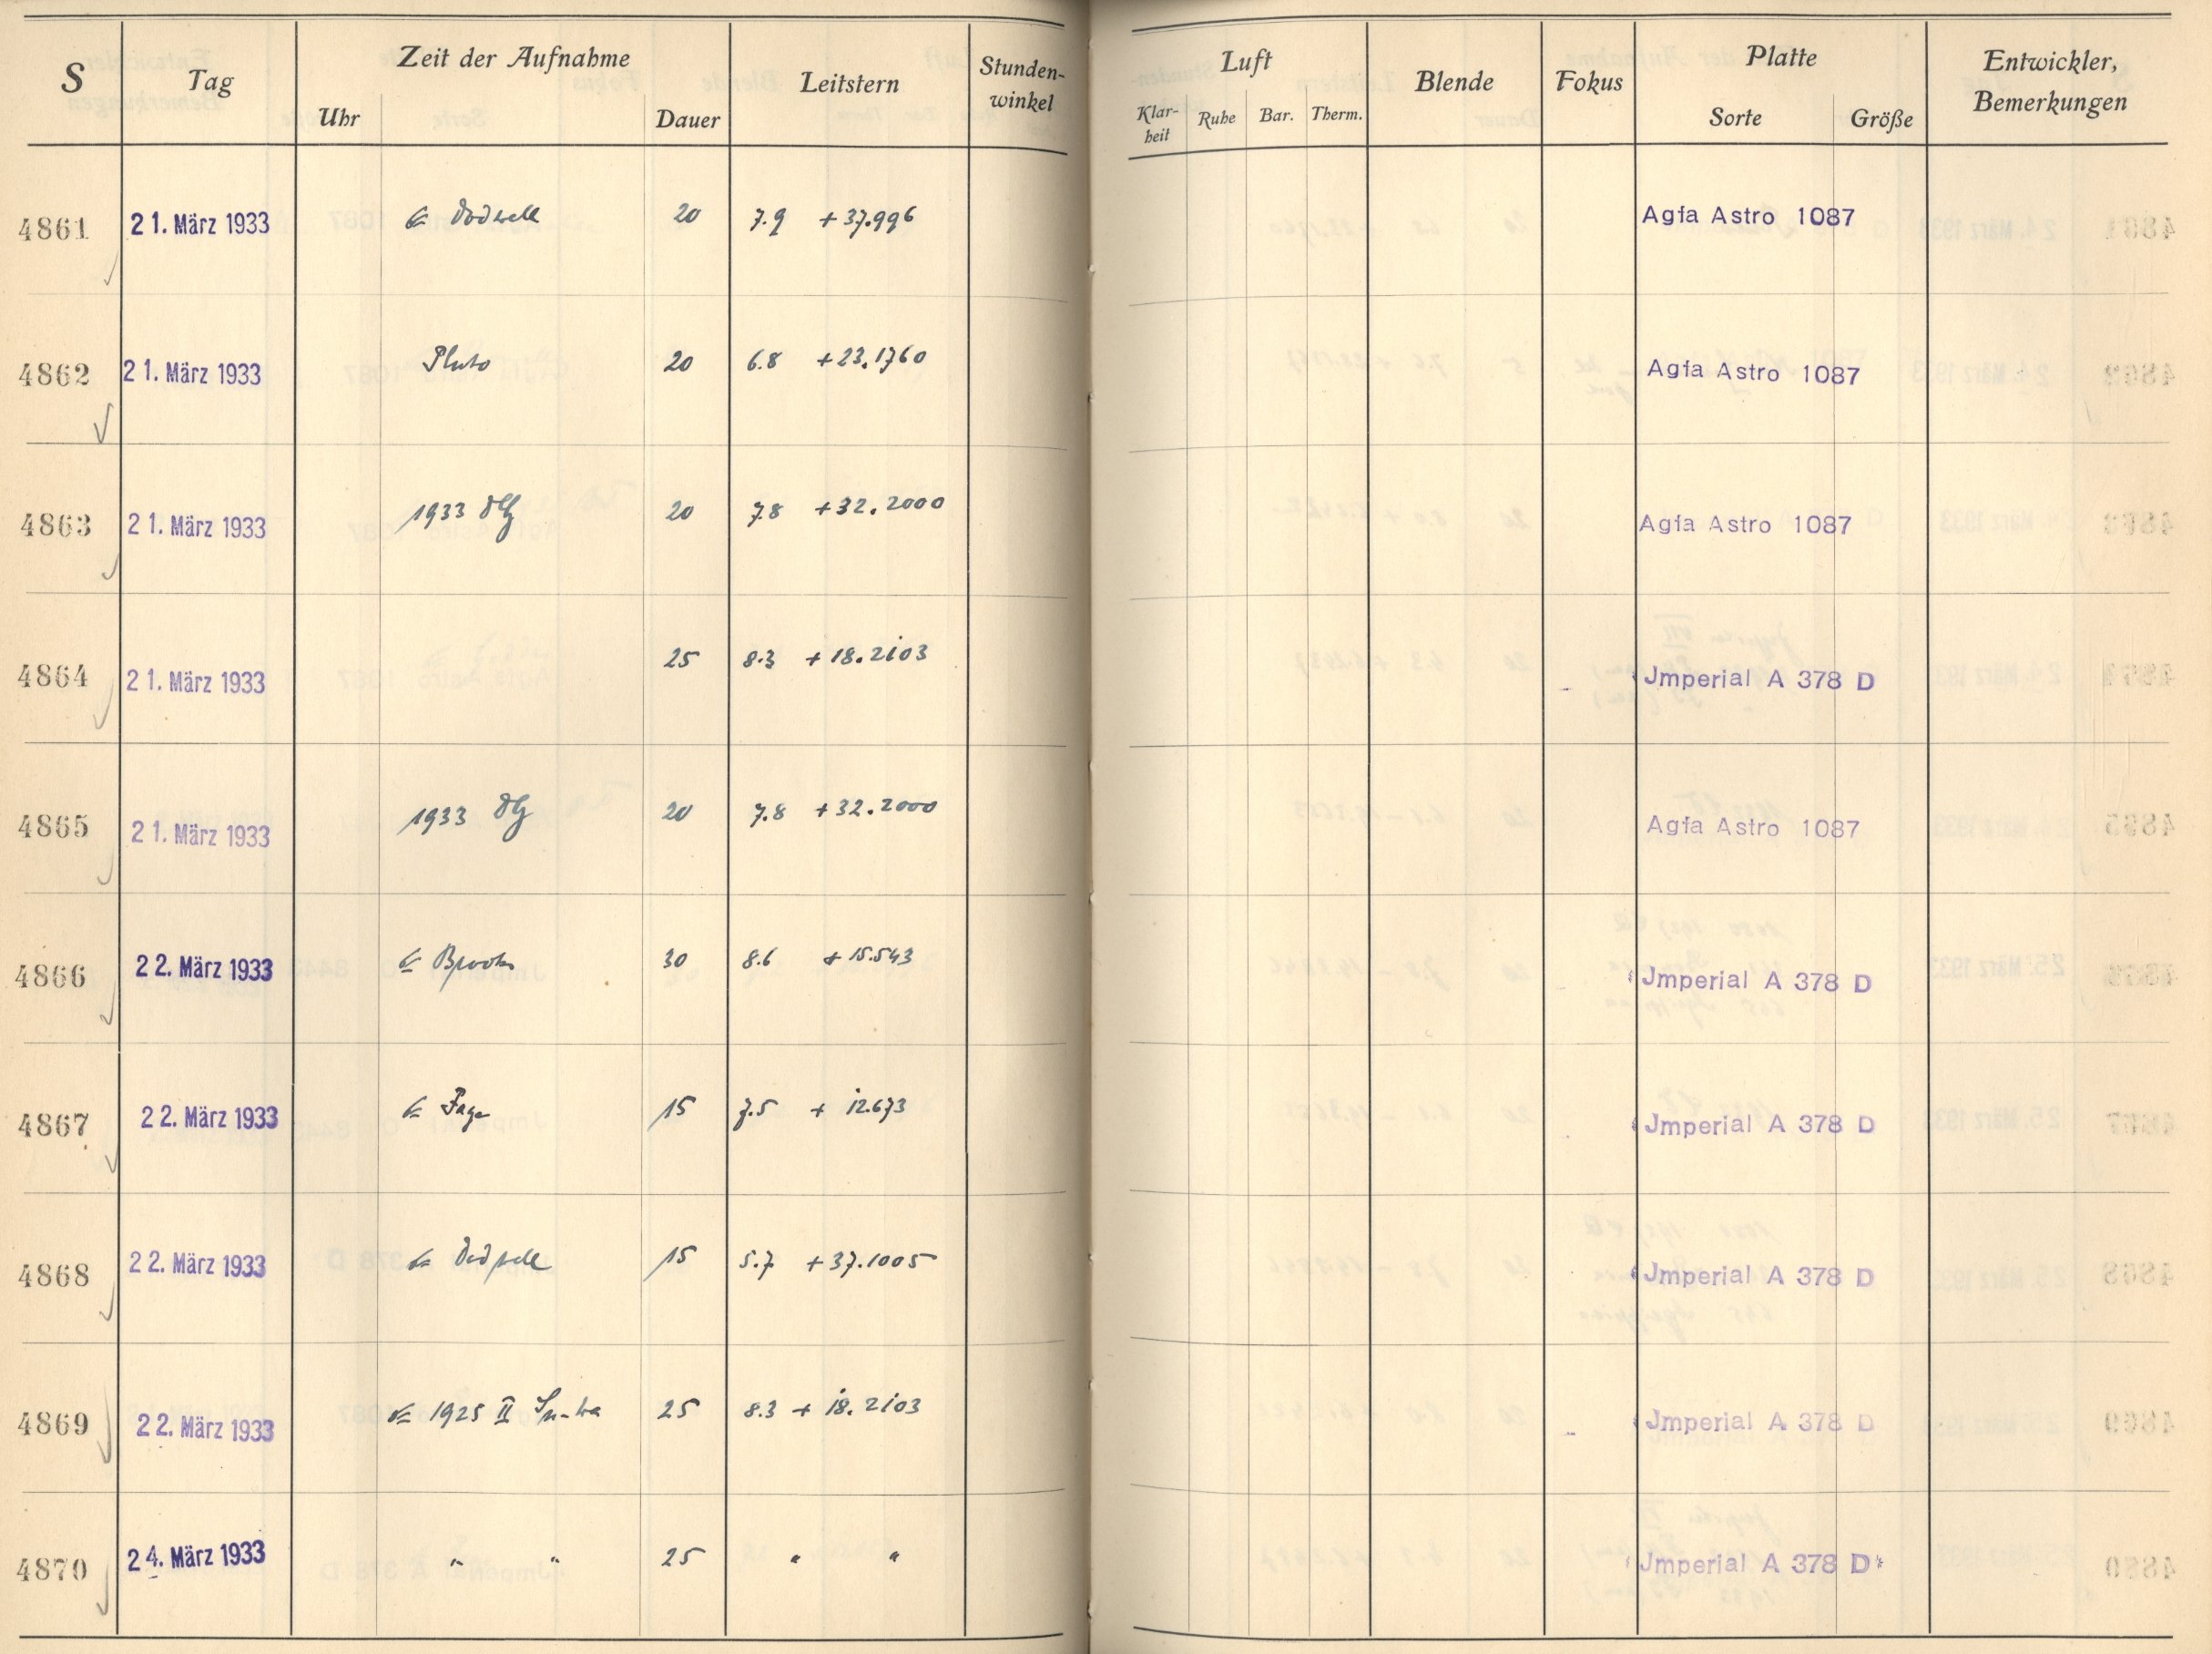 S Tag Zeit der Aufnahme Leitstern Stunden-winkel Luft Blende Fokus Platte Entwickler, Bemerkungen
Uhr Dauer Klar-heit Ruhe Bar. Therm. Sorte Größe
4861 21. März 1933 Dodwell 20 7.9 +37.996 Agfa Astro 1087
4862 21. März 1933 Pluto 20 6.8 +23.1760 Agfa Astro 1087
4863 21. März 1933 1933 20 7.8 +32.2000 Agfa Astro 1087
4864 21. März 1933 25 8.3 +18.2103 Jmperial A 378 D
4865 21. März 1933 1933 20 7.8 +32.2000 Agfa Astro 1087
4866 22. März 1933 Brooks 30 8.6 +15.543 Jmperial A 378 D
4867 22. März 1933 Faye 15 7.5 + 12.673 Jmperial A 378 D
4868 22. März 1933 15 5.7 +37.1005 Jmperial A 378 D
4869 22. März 1933 1925 II 25 8.3 + 18.2103 Jmperial A 378 D
4870 24. März 1933 " " 25 " " Jmperial A 378 D